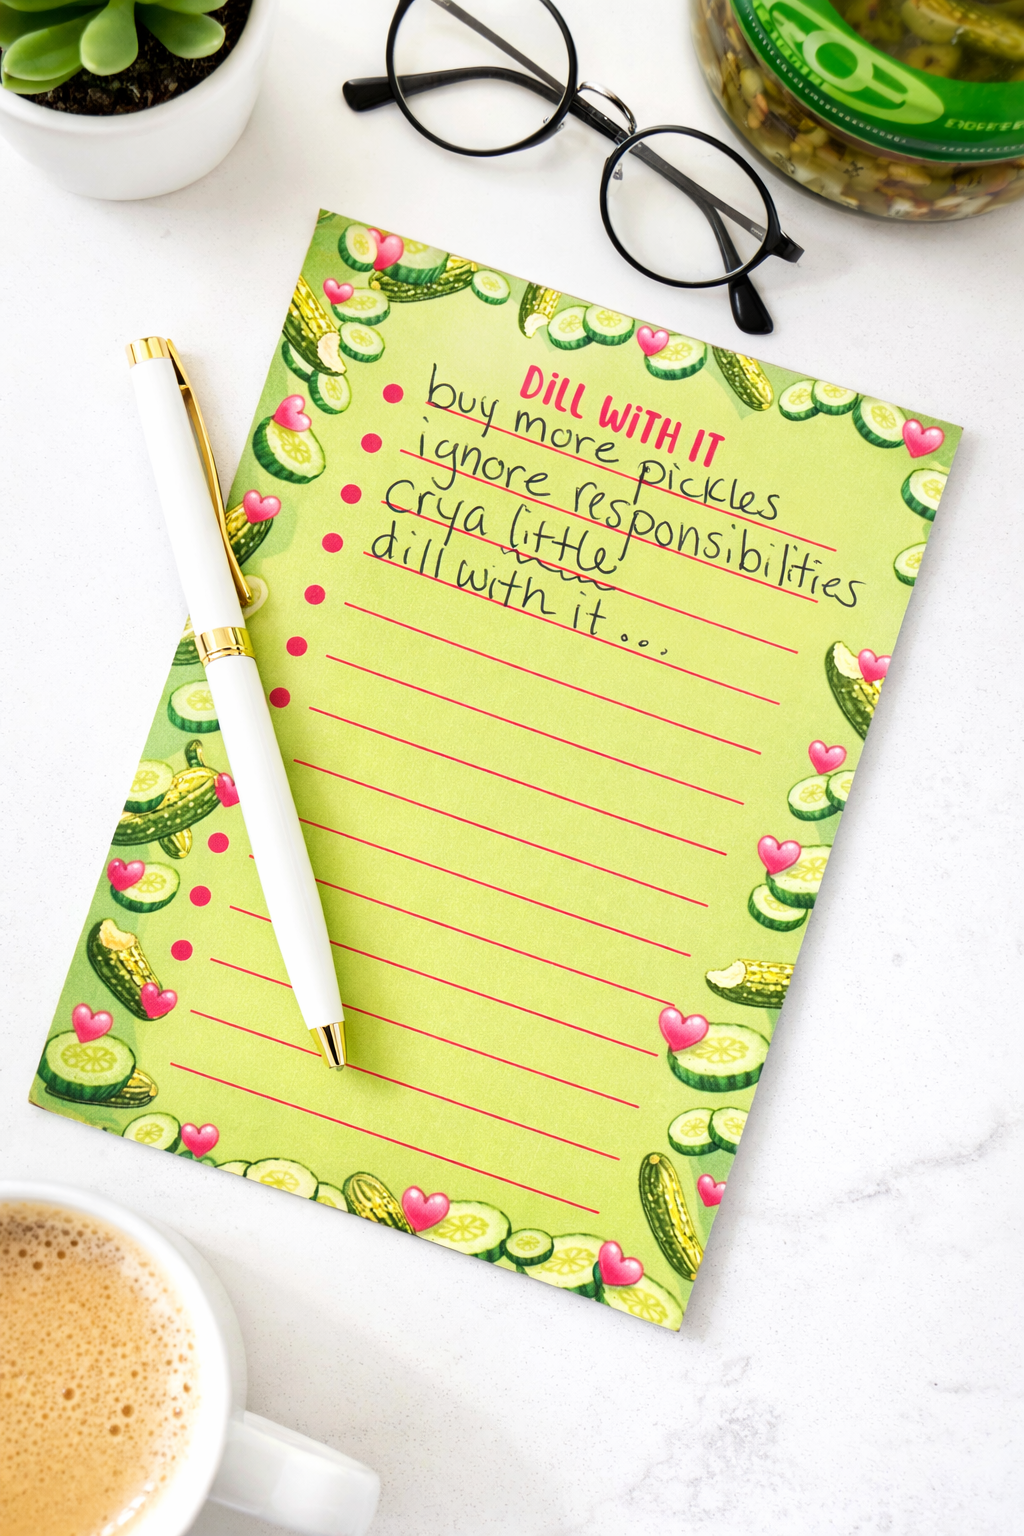 DiLL WiTH IT
buy more pickles
ignore responsibilities
Cry a little
dill with it...